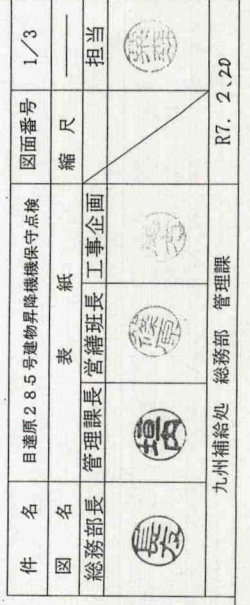 件 名 目達原285号建物昇降機機保守点検 図面番号 1/3
図 名 表 紙 縮 尺 ―
総務部長 管理課長 営繕班長 工事企画 担当
九州補給処 総務部 管理課 R7. 2. 20